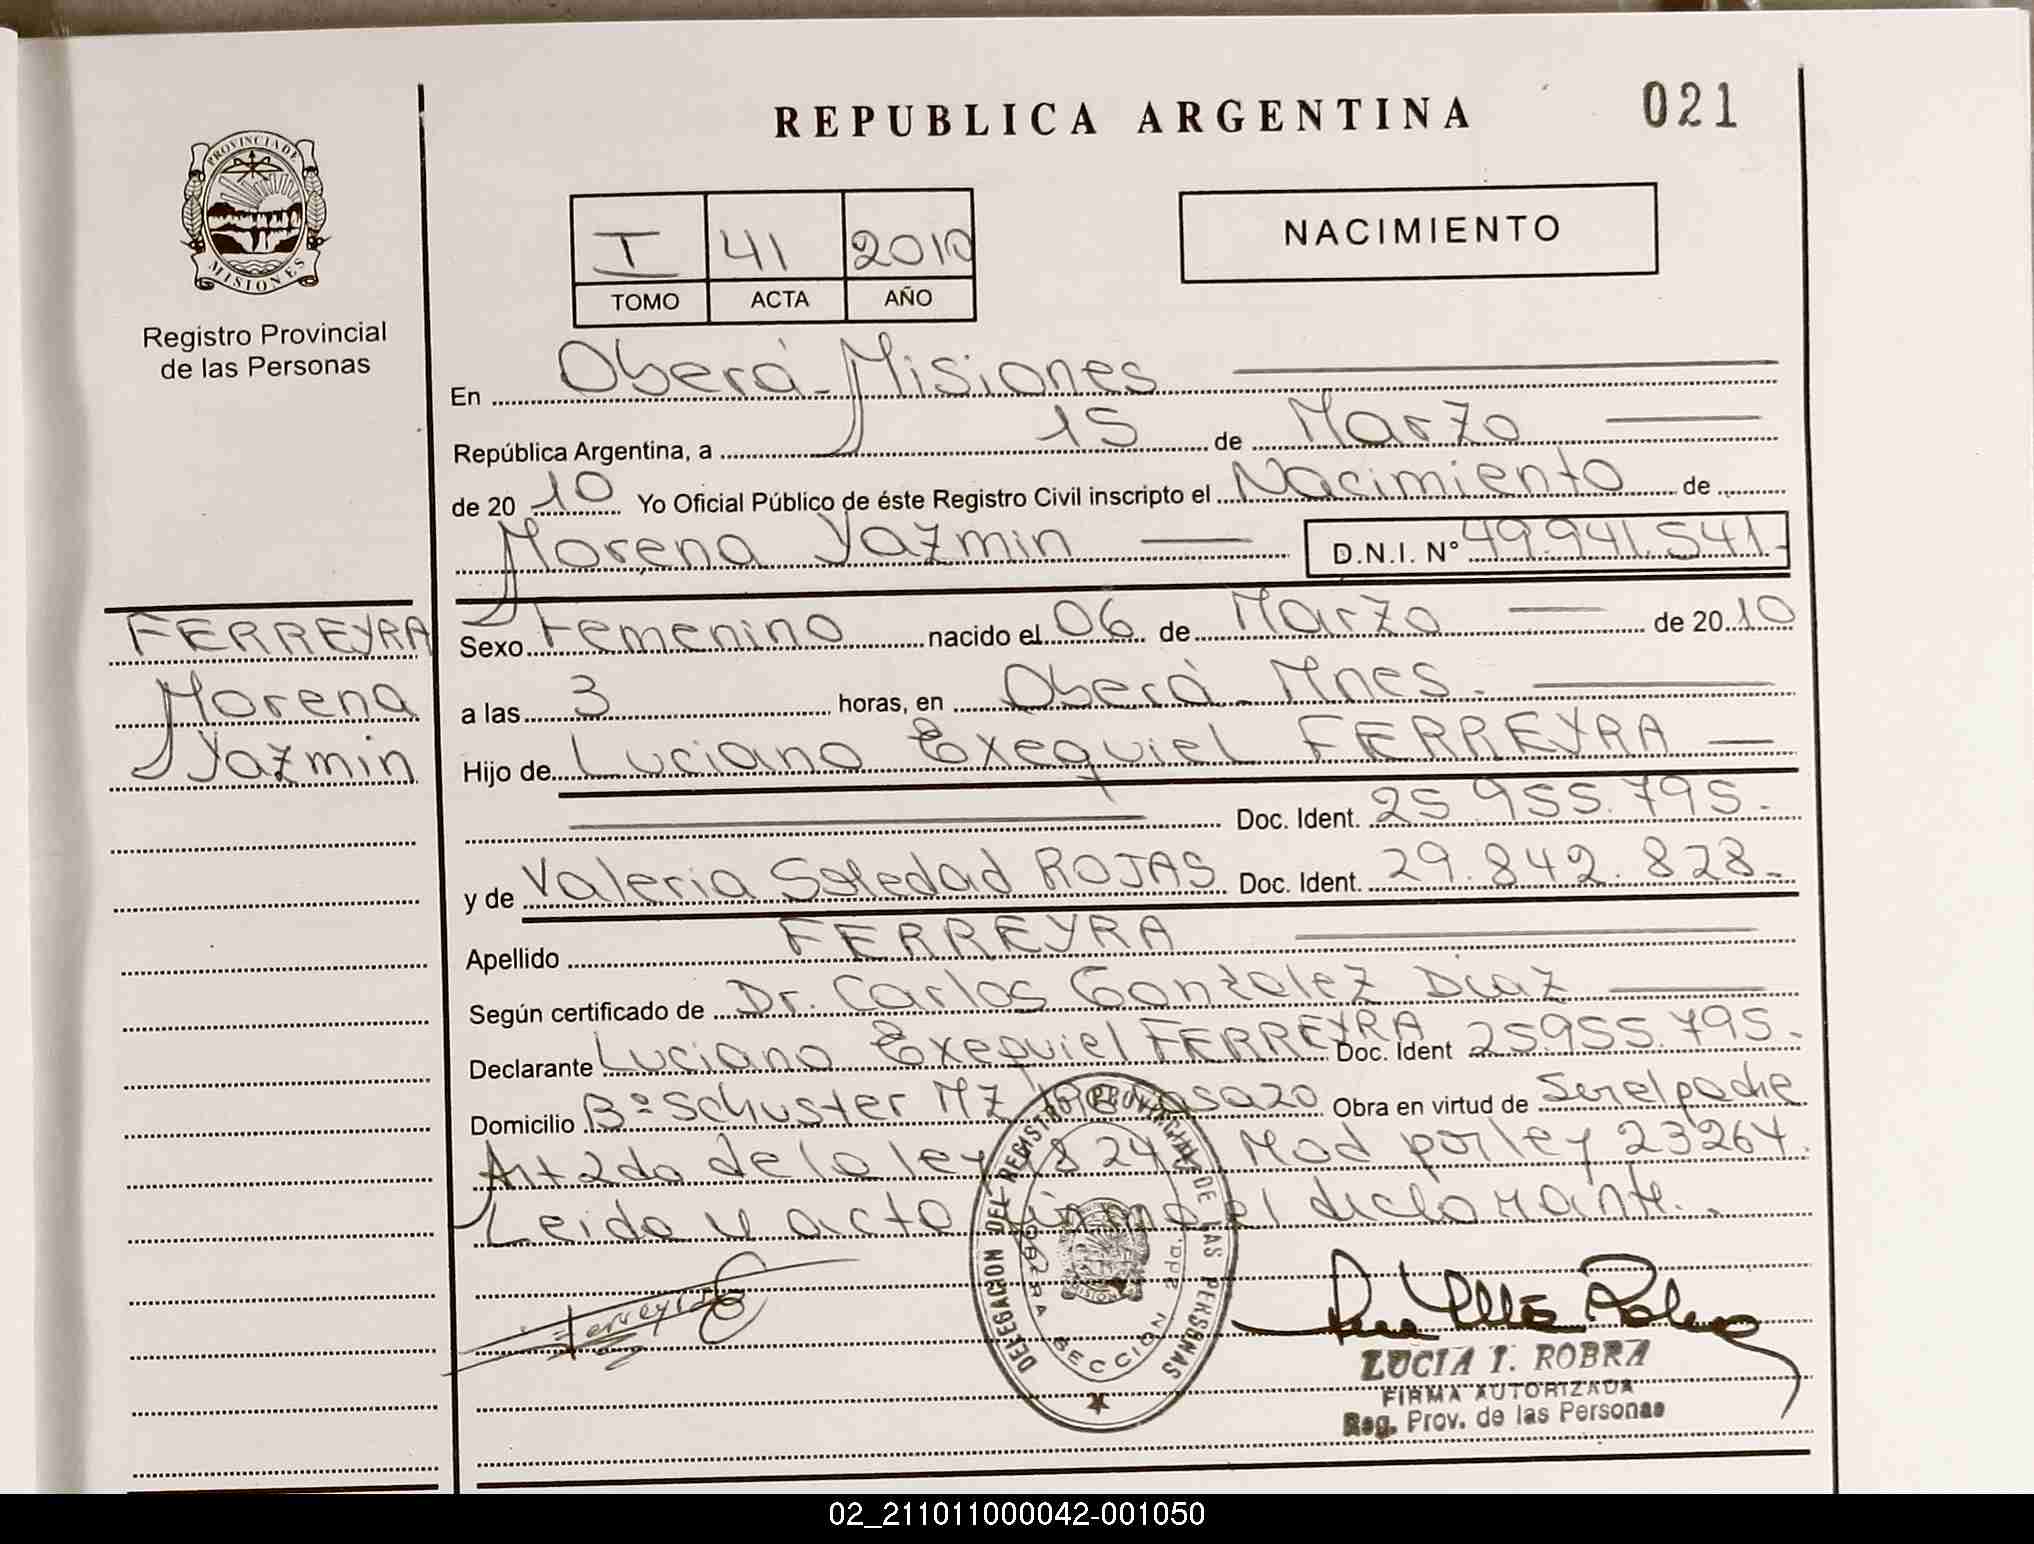 REPUBLICA ARGENTINA
021
PROVINCIA DE MISIONES
Registro Provincial
de las Personas
I 41 2010
TOMO ACTA AÑO
NACIMIENTO
En Oberá - Misiones
República Argentina, a 15 de Marzo
de 2010 Yo Oficial Público de éste Registro Civil inscripto el Nacimiento de
Morena Yazmin D.N.I. N° 49.941.541.-
FERREYRA
Morena
Yazmin
Sexo Femenino nacido el 06 de Marzo de 2010
a las 3 horas, en Oberá - Mnes.
Hijo de Luciano Exequiel FERREYRA
Doc. Ident. 25.955.795.-
y de Valeria Soledad ROJAS Doc. Ident. 29.842.828.-
Apellido FERREYRA
Según certificado de Dr. Carlos Gonzalez Diaz
Declarante Luciano Exequiel FERREYRA Doc. Ident 25955.795.-
Domicilio B° Schuster Mz casa 20 Obra en virtud de Ser el padre
Art 2do de la ley Mod por ley 23264.
Leido y acto firma el declarante.
Ferreyra
DELEGACION DEL REGISTRO PROVINCIAL DE LAS PERSONAS
OBERA SECCION 2da.
MISIONES
LUCIA I. ROBRA
FIRMA AUTORIZADA
Reg. Prov. de las Personas
02_211011000042-001050